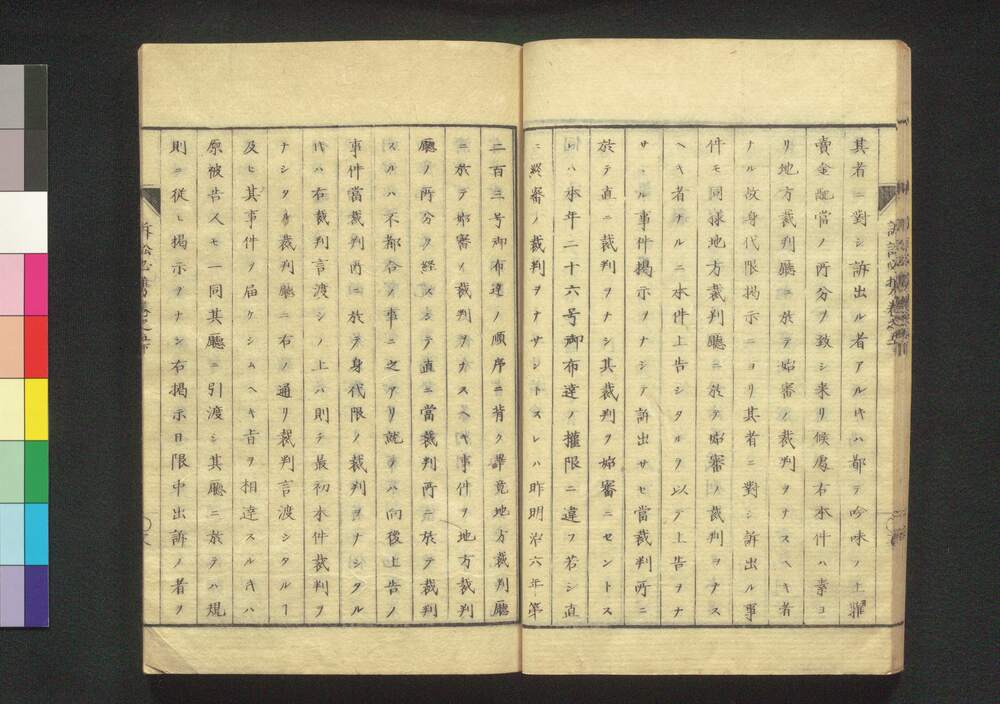 其者ニ對シ訴出ル者アルキハ都テ吟味ノ上羅
賣金配當ノ所分ヲ致シ来リ候處右本件ハ素ヨ
リ地方裁判廳ニ於テ始審ノ裁判ヲナスヘキ者
ナル故身代限掲示ニヨリ其者ニ對シ訴出ル事
件モ同様地方裁判廳ニ於テ始審ノ裁判ヲナス
ヘキ者ナルニ本件上告シタルヲ以テ上告ヲナ
サヽル事件掲示ヲナシテ訴出サセ當裁判所ニ
於テ直ニ裁判ヲナシ其裁判ヲ始審ニセントス
レハ本年二十六号御布達ノ權限ニ違フ若シ直
ニ終審ノ裁判ヲナサントスレハ昨明治六年第
二百三号御布達ノ順序ニ背ク畢竟地方裁判廳
ニ於テ始審ノ裁判ヲナスヘキ事件ヲ地方裁判
廳ノ所分ヲ経スシテ直ニ當裁判所ニ於テ裁判
スルハ不都合ノ事ニ之アリ就テハ向後上告ノ
事件當裁判所ニ於テ身代限ノ裁判ヲナシタル
ヰハ右裁判言渡シノ上ハ則チ最初本件裁判ヲ
ナシタル裁判廳ニ右ノ通リ裁判言渡シタルヿ
及ヒ其事件ヲ届ケシムヘキ旨ヲ相達スルキハ
原被告人モ一同其廳ニ引渡シ其廳ニ於テハ規
則ニ従ヒ掲示ヲナシ右掲示日限中出訴ノ者ヲ